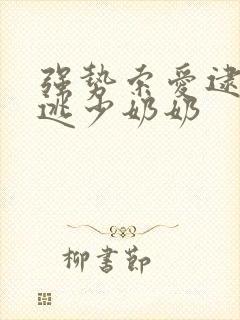 强势索爱逮
逃少奶奶
柳书节